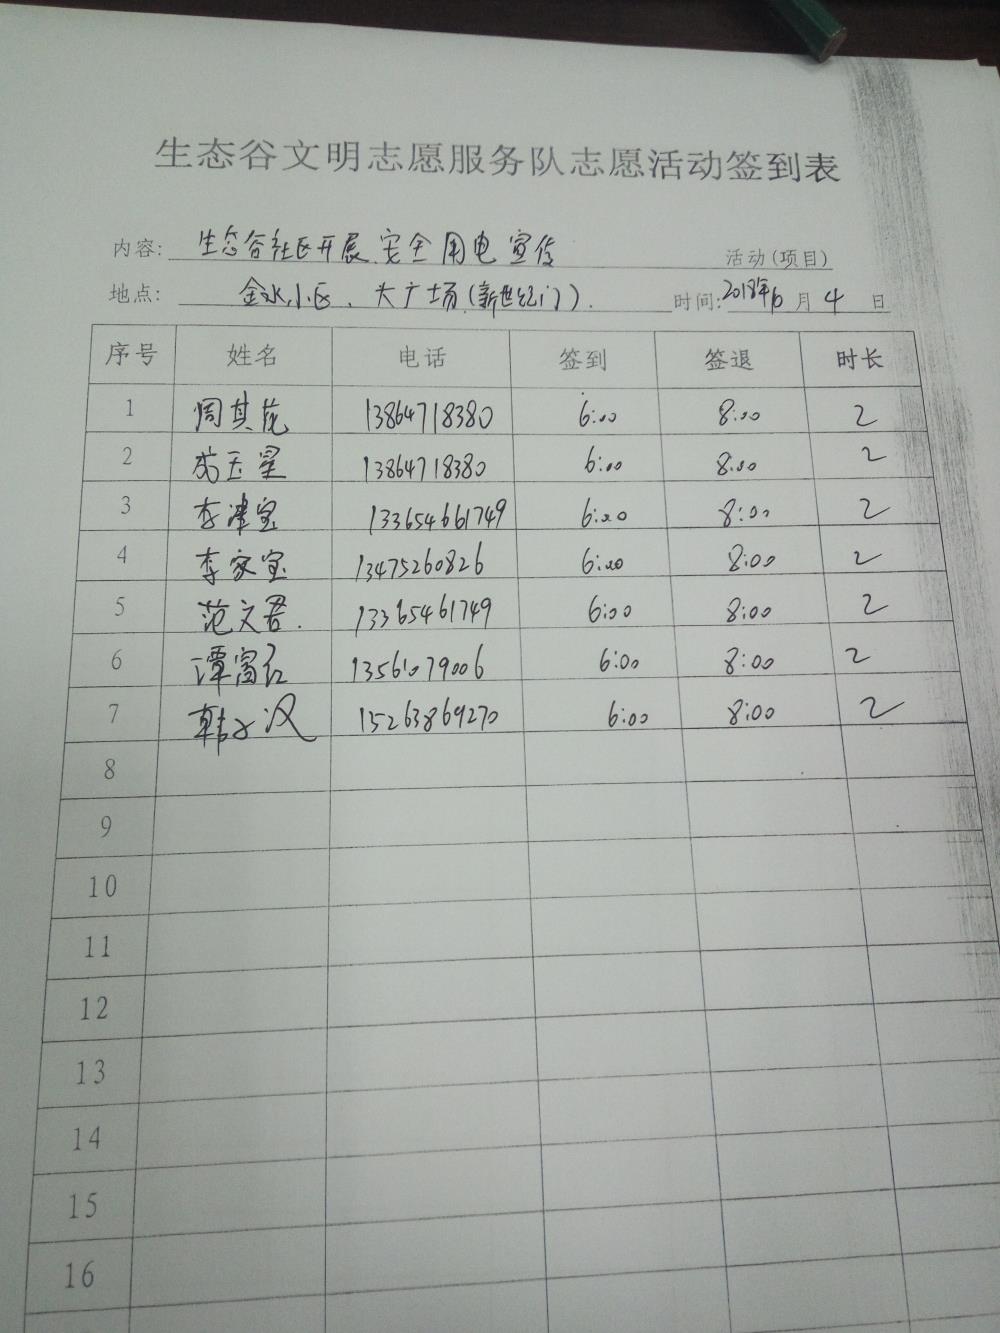 生态谷文明志愿服务队志愿活动签到表
内容: 生态谷社区开展安全用电宣传 活动(项目)
地点: 金水小区、大广场(新世纪门). 时间: 2018年6月4日
序号 姓名 电话 签到 签退 时长
1 周其花 13864718380 6:00 8:00 2
2 玉星 13864718380 6:00 8:00 2
3 李津宝 133654661749 6:00 8:00 2
4 李家宝 13475260826 6:00 8:00 2
5 范文君. 13365461749 6:00 8:00 2
6 谭富红 13561079006 6:00 8:00 2
7 韩子汉 15263869270 6:00 8:00 2
8
9
10
11
12
13
14
15
16